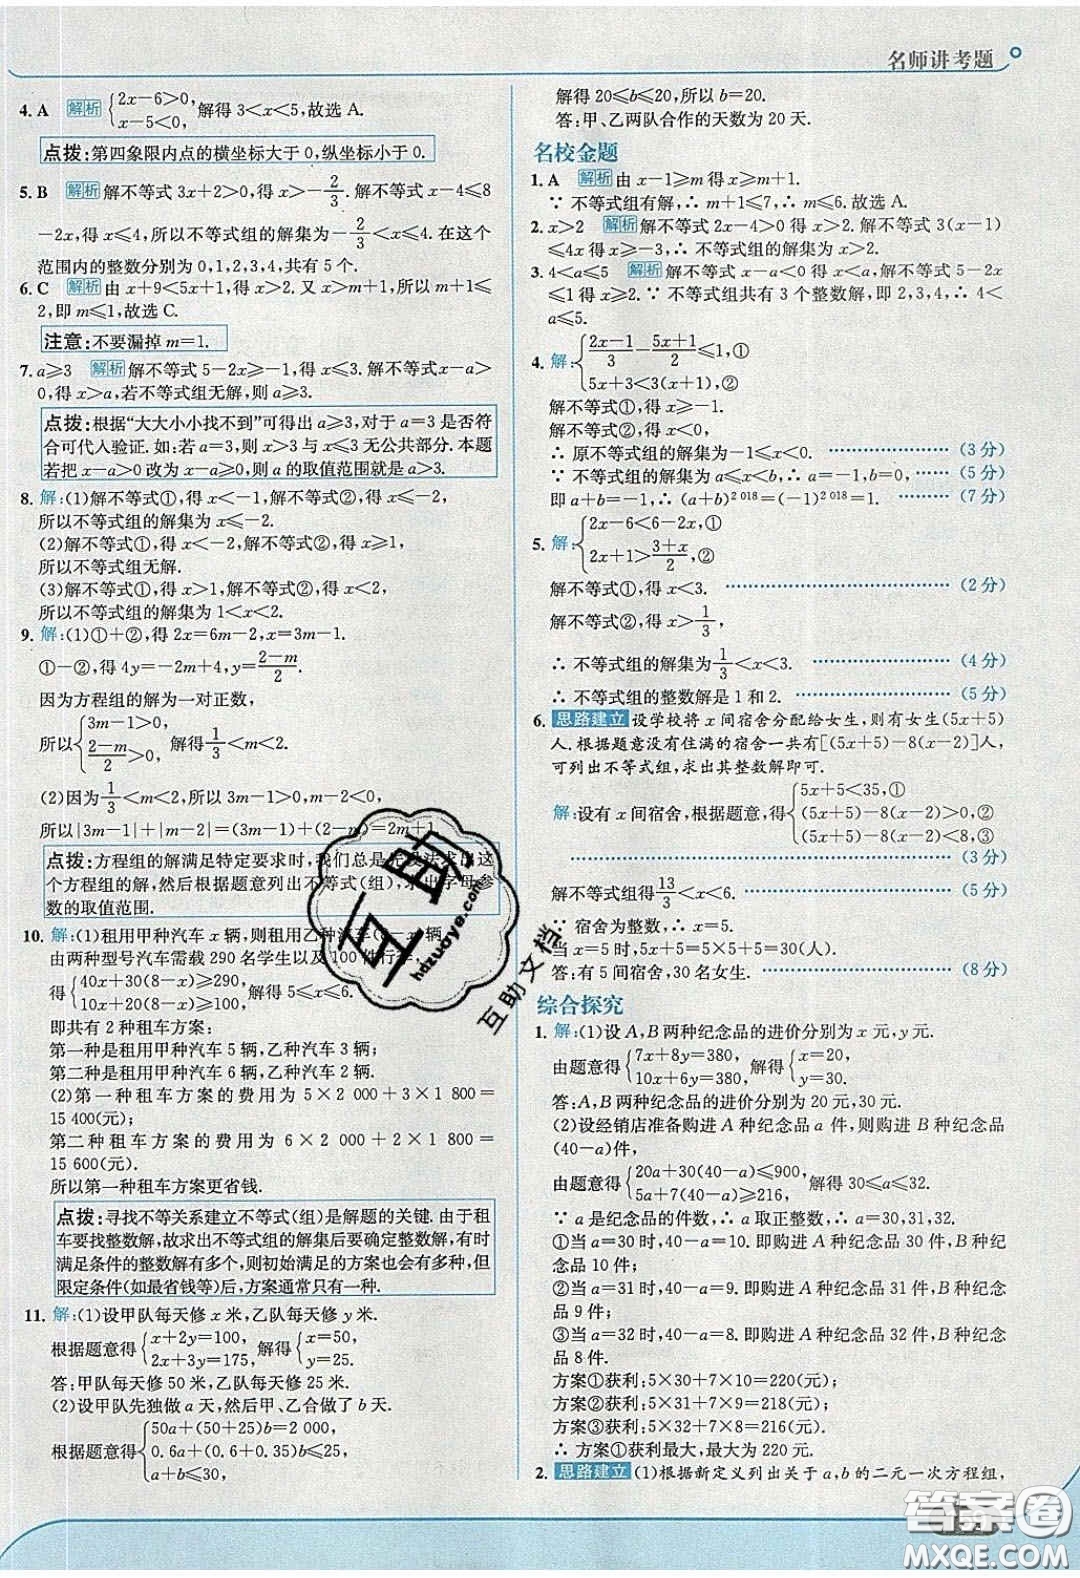 名师讲考题
4. A 解析 {2x－6＞0, x－5＜0, 解得 3＜x＜5,故选 A.
点拨:第四象限内点的横坐标大于 0,纵坐标小于 0.
5. B 解析 解不等式 3x＋2＞0,得 x＞－2/3. 解不等式 x－4≤8
－2x,得 x≤4,所以不等式组的解集为－2/3＜x≤4. 在这个
范围内的整数分别为 0,1,2,3,4,共有 5 个.
6. C 解析 由 x＋9＜5x＋1,得 x＞2. 又 x＞m＋1,所以 m＋1≤
2,即 m≤1,故选 C.
注意:不要漏掉 m＝1.
7. a≥3 解析 解不等式 5－2x≥－1,得 x≤3. 解不等式 x－a＞
0,得 x＞a,若不等式组无解,则 a≥3.
点拨:根据“大大小小找不到”可得出 a≥3,对于 a＝3 是否符
合可代入验证. 如:若 a＝3,则 x＞3 与 x≤3 无公共部分. 本题
若把 x－a＞0 改为 x－a≥0,则 a 的取值范围就是 a＞3.
8. 解:(1)解不等式①,得 x＜－1,解不等式②,得 x≤－2,
所以不等式组的解集为 x≤－2.
(2)解不等式①,得 x＜－2,解不等式②,得 x≥1,
所以不等式组无解.
(3)解不等式①,得 x＞1,解不等式②,得 x＜2,
所以不等式组的解集为 1＜x＜2.
9. 解:(1)①＋②,得 2x＝6m－2,x＝3m－1.
①－②,得 4y＝－2m＋4,y＝(2－m)/2.
因为方程组的解为一对正数,
所以{3m－1＞0, (2－m)/2＞0, 解得1/3＜m＜2.
(2)因为1/3＜m＜2,所以 3m－1＞0,m－2＜0,
所以|3m－1|＋|m－2|＝(3m－1)＋(2－m)＝2m＋1.
点拨:方程组的解满足特定要求时,我们总是先设法求出这
个方程组的解,然后根据题意列出不等式(组),求出字母参
数的取值范围.
10. 解:(1)租用甲种汽车 x 辆,则租用乙种汽车(8－x)辆,
由两种型号汽车需载 290 名学生以及 100 件行李,
得{40x＋30(8－x)≥290, 10x＋20(8－x)≥100, 解得 5≤x≤6.
即共有 2 种租车方案:
第一种是租用甲种汽车 5 辆,乙种汽车 3 辆;
第二种是租用甲种汽车 6 辆,乙种汽车 2 辆.
(2)第一种租车方案的费用为 5×2 000＋3×1 800＝
15 400(元);
第二种租车方案的费用为 6×2 000＋2×1 800＝
15 600(元).
所以第一种租车方案更省钱.
点拨:寻找不等关系建立不等式(组)是解题的关键. 由于租
车要找整数解,故求出不等式组的解集后要确定整数解,有时
满足条件的整数解有多个,则初始满足的方案也会有多种,但
限定条件(如最省钱等)后,方案通常只有一种.
11. 解:(1)设甲队每天修 x 米,乙队每天修 y 米.
根据题意得{x＋2y＝100, 2x＋3y＝175, 解得{x＝50, y＝25.
答:甲队每天修 50 米,乙队每天修 25 米.
(2)设甲队先独做 a 天,然后甲、乙合作了 b 天.
根据题意得{50a＋(50＋25)b＝2 000, 0.6a＋(0.6＋0.35)b≤25, a＋b≤30,
解得 20≤b≤20,所以 b＝20.
答:甲、乙两队合作的天数为 20 天.
名校金题
1. A 解析 由 x－1≥m 得 x≥m＋1.
∵ 不等式组有解,∴ m＋1≤7,∴ m≤6. 故选 A.
2. x＞2 解析 解不等式 2x－4＞0 得 x＞2. 解不等式 3(x－1)
≤4x 得 x≥－3,∴ 不等式组的解集为 x＞2.
3. 4＜a≤5 解析 解不等式 x－a＜0 得 x＜a,解不等式 5－2x
≤1 得 x≥2. ∵ 不等式组共有 3 个整数解,即 2,3,4,∴ 4＜
a≤5.
4. 解:{(2x－1)/3－(5x＋1)/2≤1,① 5x＋3＜3(x＋1),②
解不等式①,得 x≥－1.
解不等式②,得 x＜0,
∴ 原不等式组的解集为－1≤x＜0. (3 分)
∵ 不等式组的解集为 a≤x＜b,∴ a＝－1,b＝0, (5 分)
即 a＋b＝－1,∴ (a＋b)^2 018＝(－1)^2 018＝1. (7 分)
5. 解:{2x－6＜6－2x,① 2x＋1＞(3＋x)/2,②
解不等式①,得 x＜3. (2 分)
解不等式②,得 x＞1/3,
∴ 不等式组的解集为1/3＜x＜3. (4 分)
∴ 不等式组的整数解是 1 和 2. (5 分)
6. 思路建立 设学校将 x 间宿舍分配给女生,则有女生(5x＋5)
人. 根据题意没有住满的宿舍一共有[(5x＋5)－8(x－2)]人,
可列出不等式组,求出其整数解即可.
解:设有 x 间宿舍,根据题意,得{5x＋5＜35,① (5x＋5)－8(x－2)＞0,② (5x＋5)－8(x－2)＜8,③
(3 分)
解不等式组得13/3＜x＜6. (5 分)
∵ 宿舍为整数,∴ x＝5.
当 x＝5 时,5x＋5＝5×5＋5＝30(人).
答:有 5 间宿舍,30 名女生. (8 分)
综合探究
1. 解:(1)设 A,B 两种纪念品的进价分别为 x 元,y 元.
由题意得{7x＋8y＝380, 10x＋6y＝380, 解得{x＝20, y＝30.
答:A,B 两种纪念品的进价分别为 20 元,30 元.
(2)设经销店准备购进 A 种纪念品 a 件,则购进 B 种纪念品
(40－a)件,
由题意得{20a＋30(40－a)≤900, 5a＋7(40－a)≥216, 解得 30≤a≤32.
∵ a 是纪念品的件数,∴ a 取正整数,∴ a＝30,31,32.
①当 a＝30 时,40－a＝10. 即购进 A 种纪念品 30 件,B 种纪
念品 10 件;
②当 a＝31 时,40－a＝9. 即购进 A 种纪念品 31 件,B 种纪念
品 9 件;
③当 a＝32 时,40－a＝8. 即购进 A 种纪念品 32 件,B 种纪念
品 8 件.
方案①获利:5×30＋7×10＝220(元);
方案②获利:5×31＋7×9＝218(元);
方案③获利:5×32＋7×8＝216(元).
∴ 方案①获利最大,最大为 220 元.
2. 思路建立 (1)根据新定义列出关于 a,b 的二元一次方程组,
互助
hdzuoye.com
互助文档
答案圈
MXQE.COM